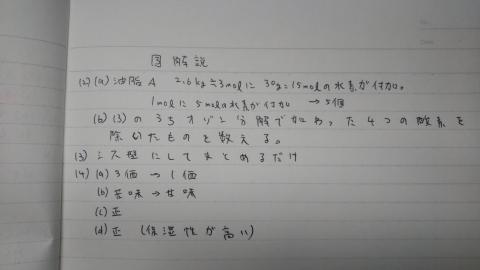 図解説
(2)(a)油脂A 2.6kg≒3molに30g=15molの水素が付加。
1molに5molの水素が付加 →5個
(b)(3)のうちオゾン分解で加わった4つの酸素を
除いたものを数える。
(3)シス型にしてまとめるだけ
(4)(a)3価→1価
(b)苦味→甘味
(c)正
(d)正 (保湿性が高い)